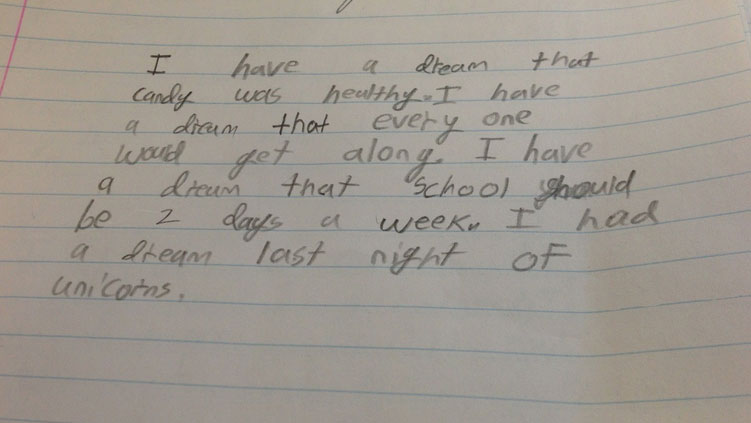 I have a dream that
candy was healthy. I have
a dream that every one
would get along. I have
a dream that school should
be 2 days a week. I had
a dream last night of
unicorns.